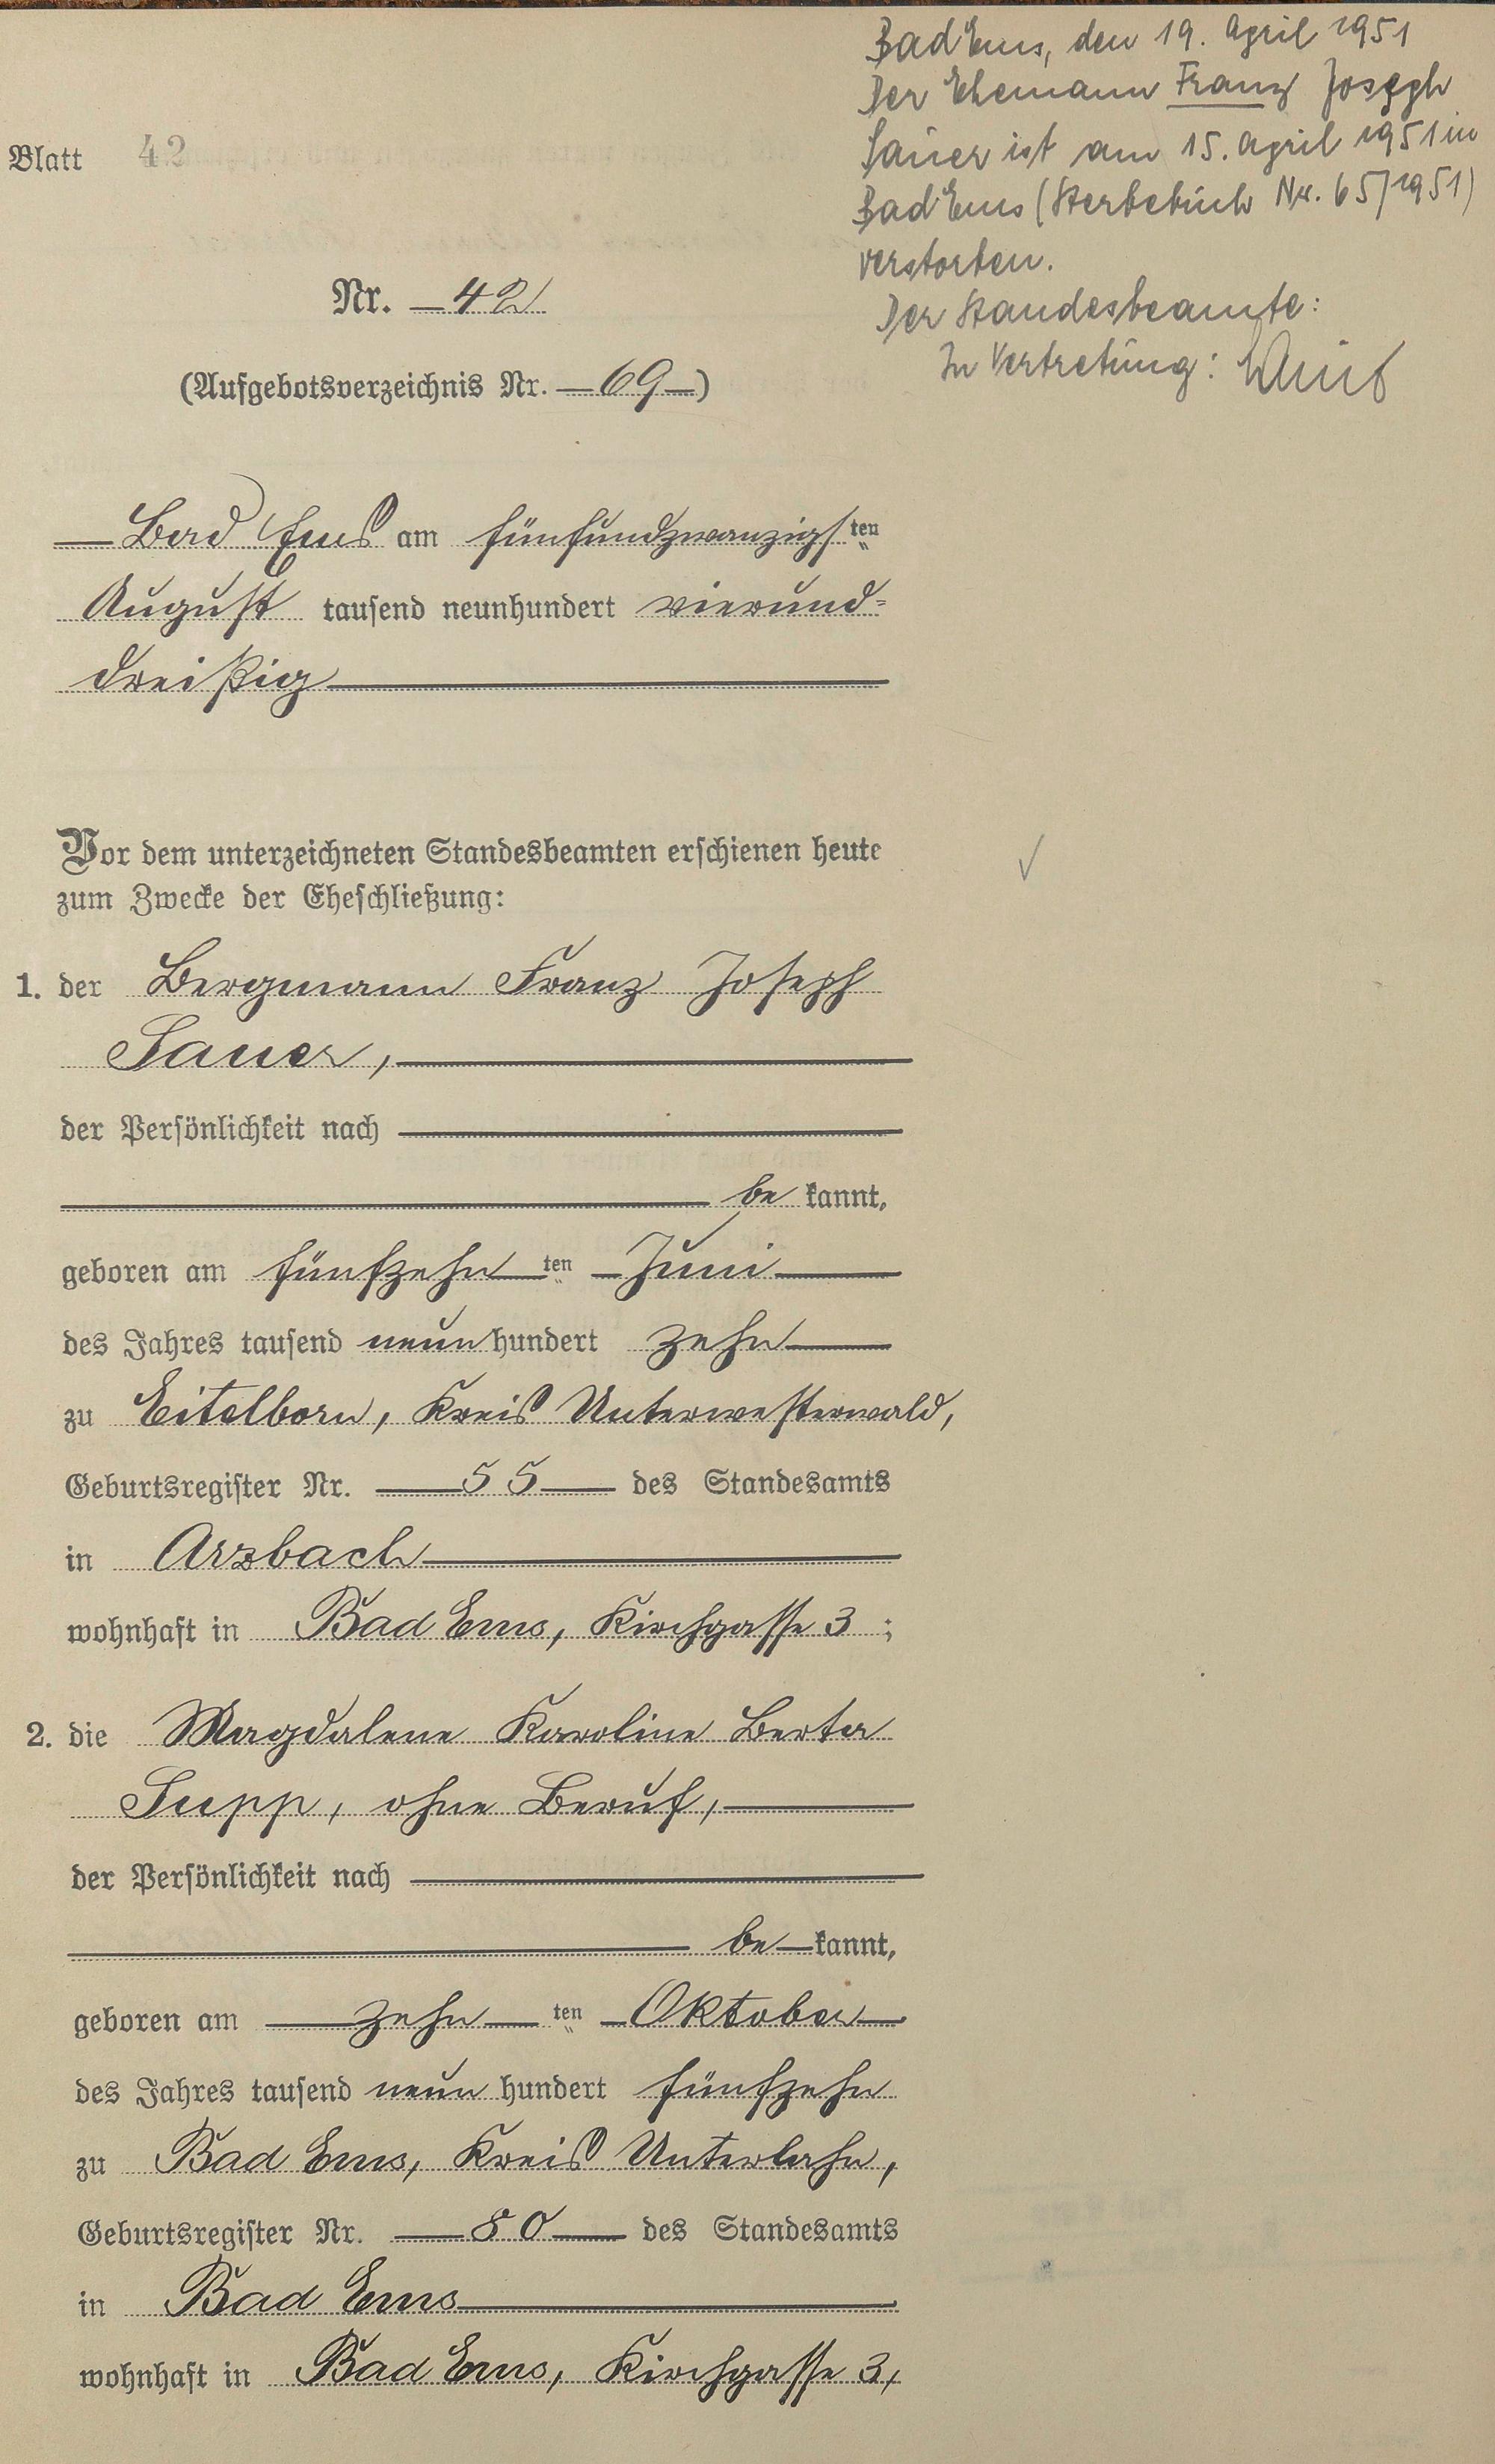 Bad Ems, den 19. April 1951
Der Ehemann Franz Joseph
Sauer ist am 15. April 1951 in
Bad Ems (Sterbebuch Nr. 65/1951)
verstorben.
Der Standesbeamte:
In Vertretung:
Blatt 42
Nr. 42
(Aufgebotsverzeichnis Nr. 69)
Bad Ems am fünfundzwanzigsten
August tausend neunhundert vierund-
dreißig
Vor dem unterzeichneten Standesbeamten erschienen heute
zum Zwecke der Eheschließung:
1. der Bergmann Franz Joseph
Sauer,
der Persönlichkeit nach
be kannt,
geboren am fünfzehn ten Juni
des Jahres tausend neun hundert zehn
zu Eitelborn, Kreis Unterwesterwald,
Geburtsregister Nr. 55 des Standesamts
in Arzbach
wohnhaft in Bad Ems, Kirchgasse 3 ;
2. die Magdalene Karoline Berta
Supp, ohne Beruf,
der Persönlichkeit nach
be kannt,
geboren am zehn ten Oktober
des Jahres tausend neun hundert fünfzehn
zu Bad Ems, Kreis Unterlahn,
Geburtsregister Nr. 80 des Standesamts
in Bad Ems
wohnhaft in Bad Ems, Kirchgasse 3,